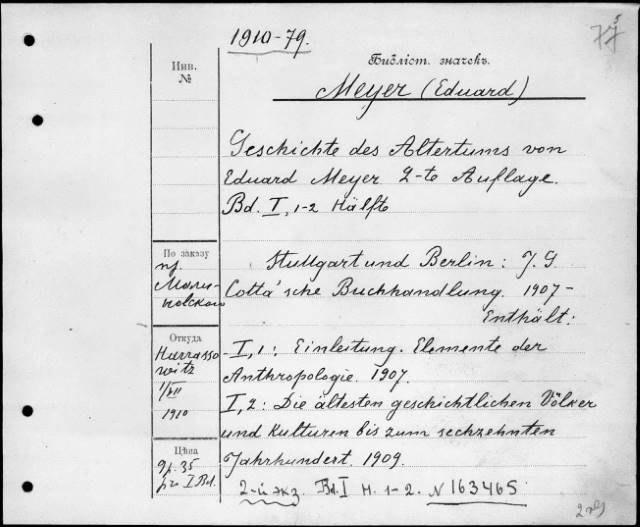 1910-79.
77
Инв.
№
Библіот. значекъ.
Meyer (Eduard)
Geschichte des Altertums von
Eduard Meyer 2-te Auflage.
Bd. I, 1-2 Hälfte
По заказу
пр.
Мали-
новского
Stuttgart und Berlin: J. G
Cotta'sche Buchhandlung. 1907-
Enthält:
Откуда
Harrasso-
witz
1/VII
1910
I,1: Einleitung. Elemente der
Anthropologie. 1907.
I,2: Die ältesten geschichtlichen Völker
und Kulturen bis zum sechzehnten
Jahrhundert. 1909.
Цѣна
9р. 35
pro I Bd.
2-й экз. Bd. I H. 1-2. N 163465